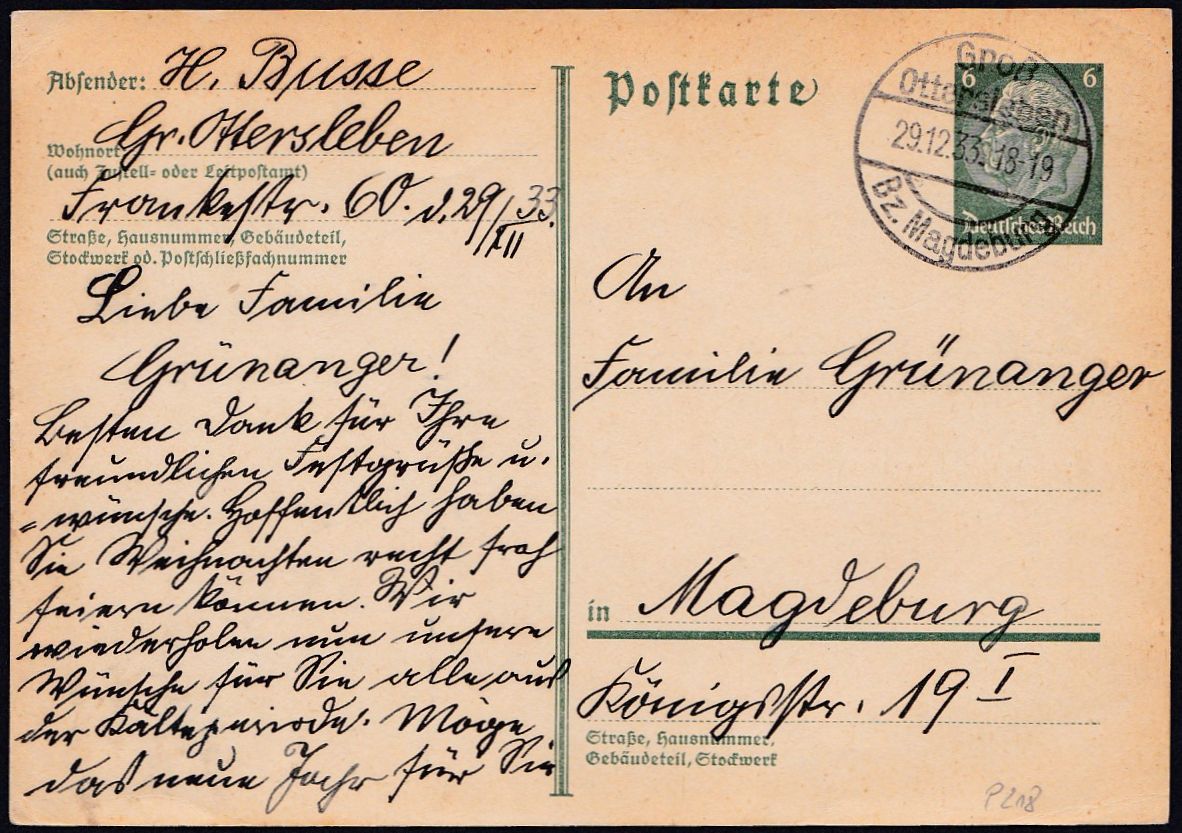 Absender: H. Busse
Gr. Ottersleben
Wohnort
(auch Zustell- oder Leitpostamt)
Frankestr. 60. d. 29/XII 33.
Straße, Hausnummer, Gebäudeteil,
Stockwerk od. Postschließfachnummer
Liebe Familie
Grünanger!
Besten Dank für Ihre
freundlichen Festgrüße u.
=wünsche. Hoffentlich haben
Sie Weihnachten recht froh
feiern können. Wir
wiederholen nun unsere
Wünsche für Sie alle aus
der Kälteperiode. Möge
das neue Jahr für Sie
Postkarte
6 6
Deutsches Reich
Groß
Ottersleben
29.12.33. 18-19
Bz. Magdeburg
An
Familie Grünanger
in Magdeburg
Königsstr. 19 I
Straße, Hausnummer,
Gebäudeteil, Stockwerk
P218